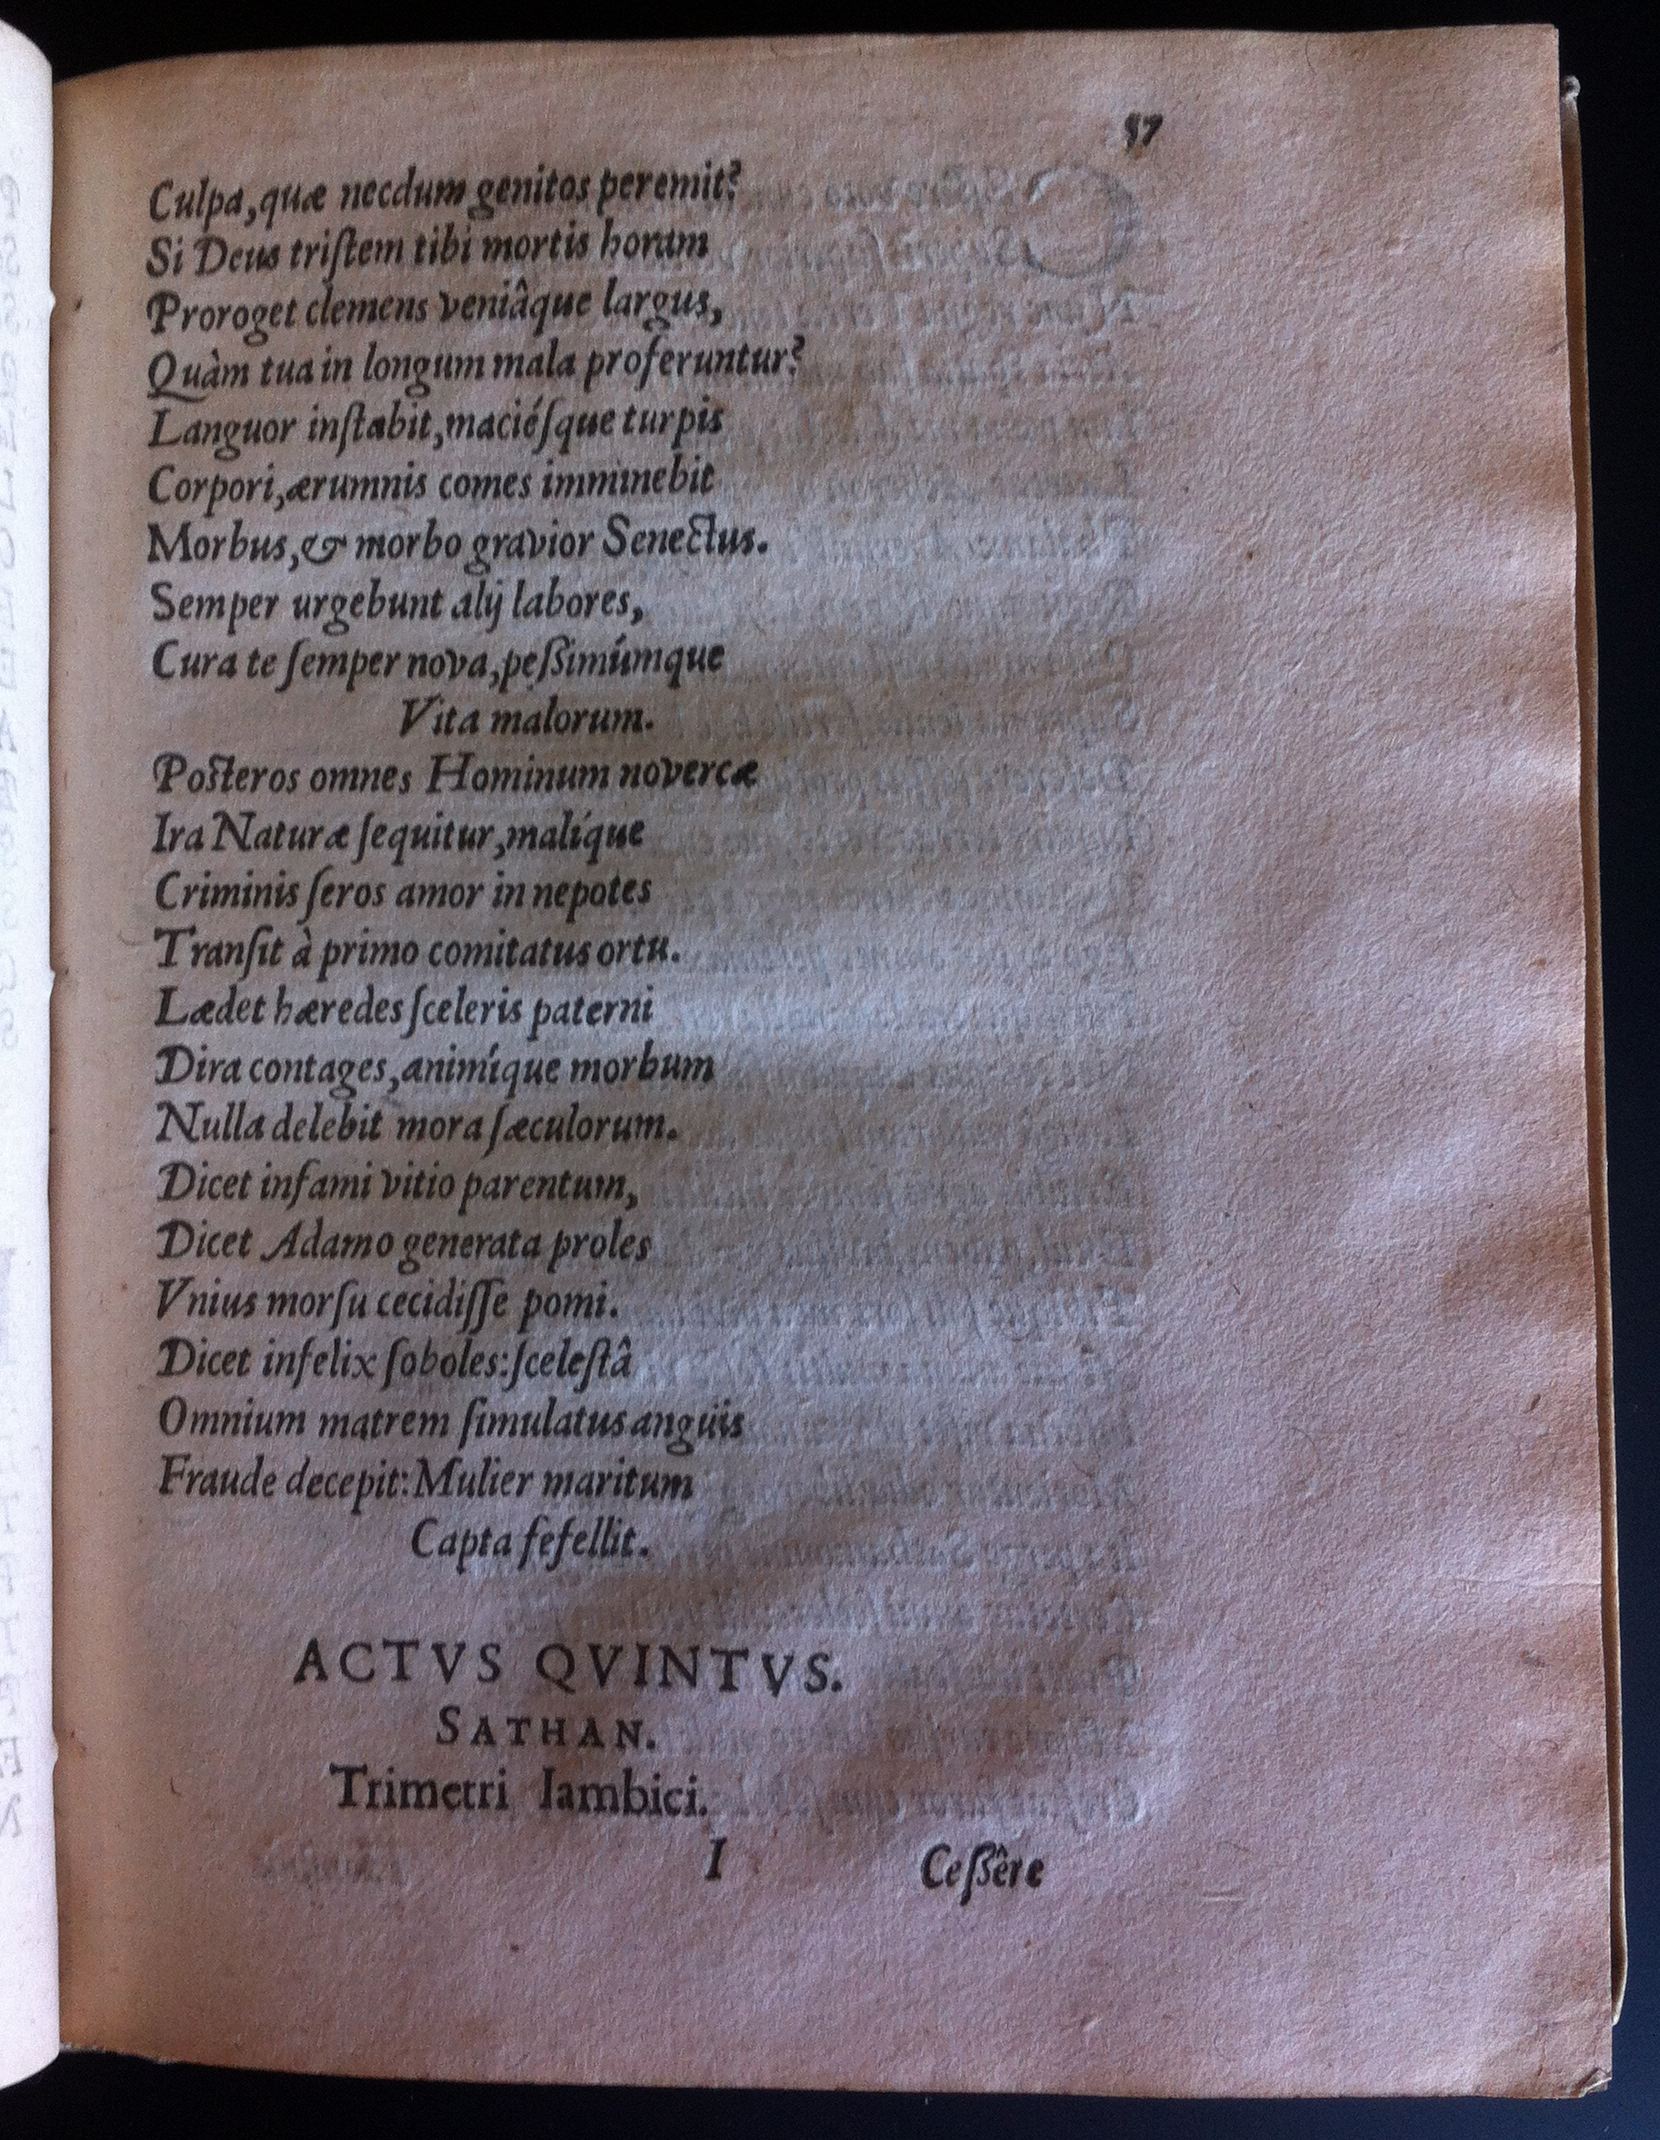 57
Culpa, quæ necdum genitos peremit?
Si Deus triſtem tibi mortis horam
Proroget clemens veniâque largus,
Quàm tua in longum mala proferuntur?
Languor inſtabit, maciéſque turpis
Corpori, ærumnis comes imminebit
Morbus, & morbo gravior Senectus.
Semper urgebunt alij labores,
Cura te ſemper nova, peßimúmque
Vita malorum.
Posteros omnes Hominum novercæ
Ira Naturæ ſequitur, malíque
Criminis ſeros amor in nepotes
Tranſit à primo comitatus ortu.
Lædet hæredes ſceleris paterni
Dira contages, animíque morbum
Nulla delebit mora ſæculorum.
Dicet infami vitio parentum,
Dicet Adamo generata proles
Vnius morſu cecidiſſe pomi.
Dicet infelix ſoboles: ſceleſtâ
Omnium matrem ſimulatus angüis
Fraude decepit: Mulier maritum
Capta fefellit.
ACTVS QVINTVS.
SATHAN.
Trimetri Iambici.
I Ceßêre